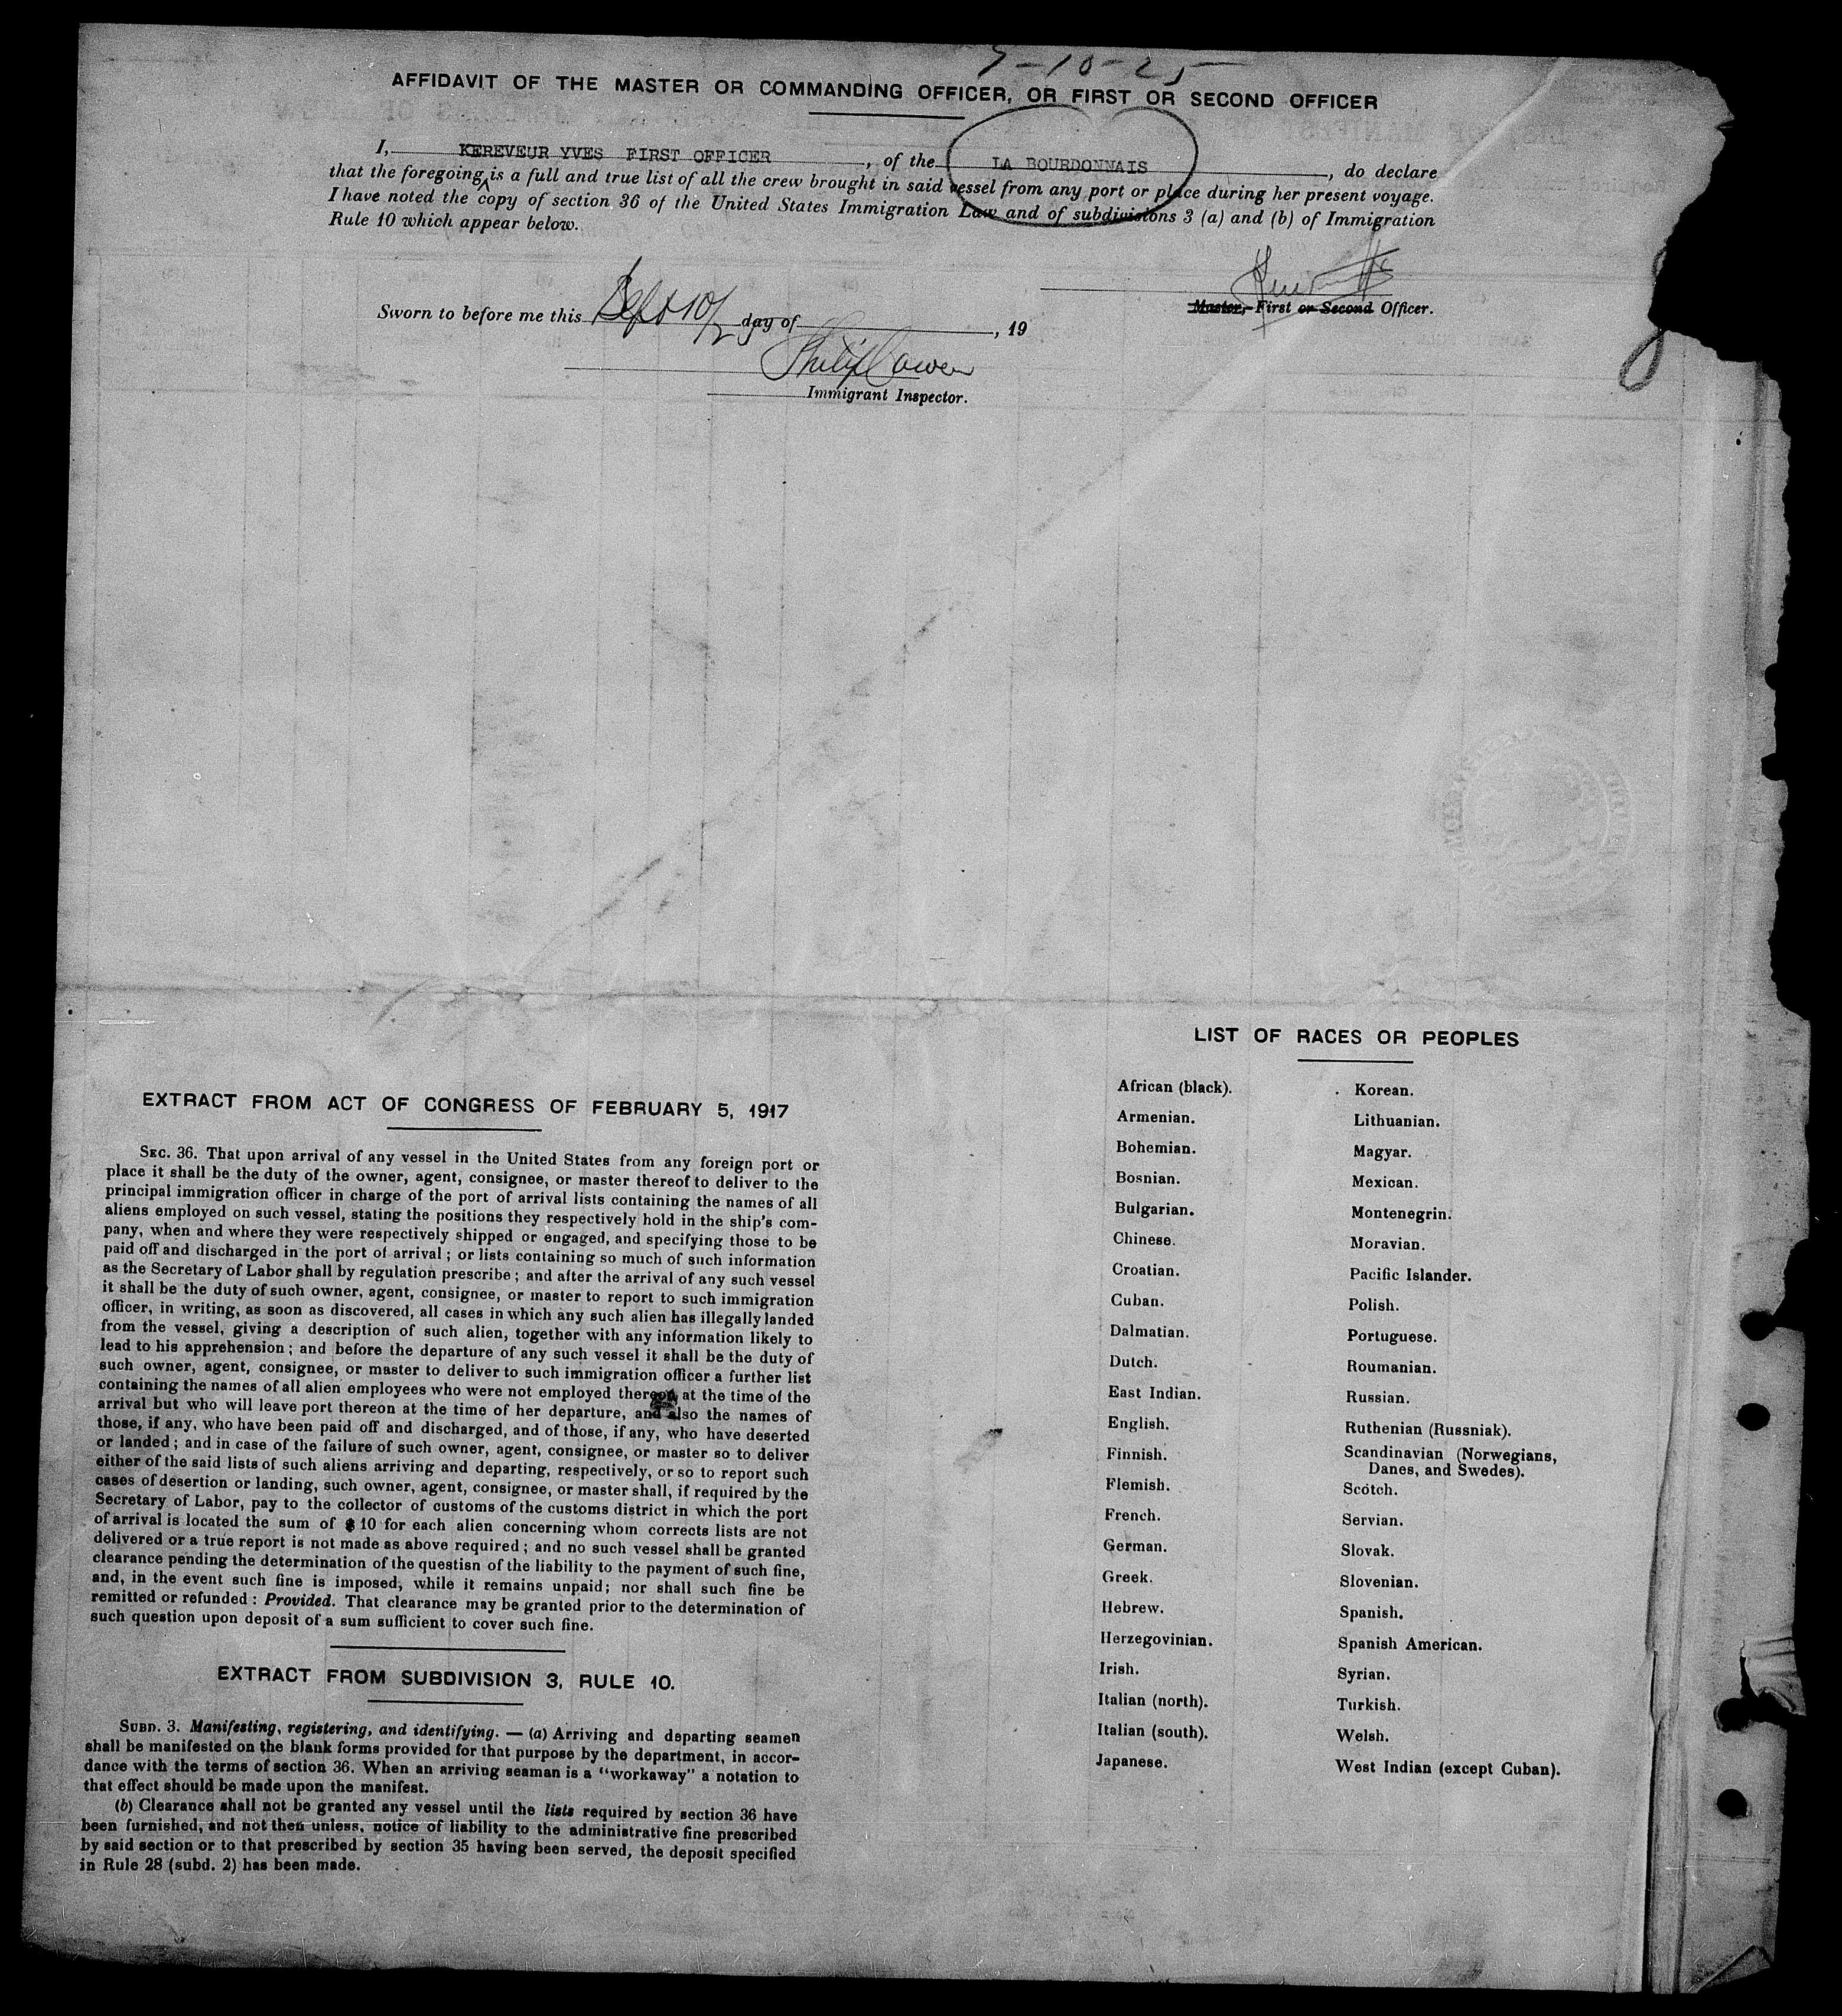 9-10-25
AFFIDAVIT OF THE MASTER OR COMMANDING OFFICER, OR FIRST OR SECOND OFFICER
I, KEREVEUR YVES FIRST OFFICER, of the LA BOURDONNAIS, do declare
that the foregoing is a full and true list of all the crew brought in said vessel from any port or place during her present voyage.
I have noted the copy of section 36 of the United States Immigration Law and of subdivisions 3 (a) and (b) of Immigration
Rule 10 which appear below.
Master, First or Second Officer.
Sworn to before me this Sept 10/25 day of , 19
Philip Cowen
Immigrant Inspector.
EXTRACT FROM ACT OF CONGRESS OF FEBRUARY 5, 1917
SEC. 36. That upon arrival of any vessel in the United States from any foreign port or
place it shall be the duty of the owner, agent, consignee, or master thereof to deliver to the
principal immigration officer in charge of the port of arrival lists containing the names of all
aliens employed on such vessel, stating the positions they respectively hold in the ship's com-
pany, when and where they were respectively shipped or engaged, and specifying those to be
paid off and discharged in the port of arrival; or lists containing so much of such information
as the Secretary of Labor shall by regulation prescribe; and after the arrival of any such vessel
it shall be the duty of such owner, agent, consignee, or master to report to such immigration
officer, in writing, as soon as discovered, all cases in which any such alien has illegally landed
from the vessel, giving a description of such alien, together with any information likely to
lead to his apprehension; and before the departure of any such vessel it shall be the duty of
such owner, agent, consignee, or master to deliver to such immigration officer a further list
containing the names of all alien employees who were not employed thereon at the time of the
arrival but who will leave port thereon at the time of her departure, and also the names of
those, if any, who have been paid off and discharged, and of those, if any, who have deserted
or landed; and in case of the failure of such owner, agent, consignee, or master so to deliver
either of the said lists of such aliens arriving and departing, respectively, or so to report such
cases of desertion or landing, such owner, agent, consignee, or master shall, if required by the
Secretary of Labor, pay to the collector of customs of the customs district in which the port
of arrival is located the sum of $ 10 for each alien concerning whom corrects lists are not
delivered or a true report is not made as above required; and no such vessel shall be granted
clearance pending the determination of the questisn of the liability to the payment of such fine,
and, in the event such fine is imposed, while it remains unpaid; nor shall such fine be
remitted or refunded : Provided. That clearance may be granted prior to the determination of
such question upon deposit of a sum sufficient to cover such fine.
EXTRACT FROM SUBDIVISION 3, RULE 10.
SUBD. 3. Manifesting, registering, and identifying. — (a) Arriving and departing seamen
shall be manifested on the blank forms provided for that purpose by the department, in accor-
dance with the terms of section 36. When an arriving seaman is a "workaway" a notation to
that effect should be made upon the manifest.
(b) Clearance shall not be granted any vessel until the lists required by section 36 have
been furnished, and not then unless, notice of liability to the administrative fine prescribed
by said section or to that prescribed by section 35 having been served, the deposit specified
in Rule 28 (subd. 2) has been made.
LIST OF RACES OR PEOPLES
African (black).
Armenian.
Bohemian.
Bosnian.
Bulgarian.
Chinese.
Croatian.
Cuban.
Dalmatian.
Dutch.
East Indian.
English.
Finnish.
Flemish.
French.
German.
Greek.
Hebrew.
Herzegovinian.
Irish.
Italian (north).
Italian (south).
Japanese.
Korean.
Lithuanian.
Magyar.
Mexican.
Montenegrin.
Moravian.
Pacific Islander.
Polish.
Portuguese.
Roumanian.
Russian.
Ruthenian (Russniak).
Scandinavian (Norwegians,
Danes, and Swedes).
Scotch.
Servian.
Slovak.
Slovenian.
Spanish.
Spanish American.
Syrian.
Turkish.
Welsh.
West Indian (except Cuban).